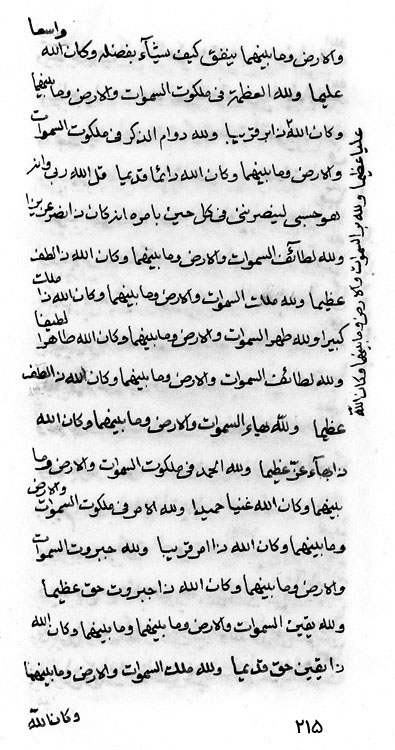 واسعا
والارض وما بينهما ينفق كيف يشآء بفضله وكان الله
عليما ولله العظمة فى ملكوت السموات والارض وما بينهما
وكان الله ذا امر قريبا ولله دوام الذكر فى ملكوت السموات
والارض وما بينهما وكان الله دائما قديما قل الله ربى وانه
هو حسبى لينصرنى فى كل حين بامره انه كان ذا نصر عزيزا
ولله لطائف السموات والارض وما بينهما وكان الله ذا لطف
عظيما ولله ملك السموات والارض وما بينهما وكان الله ذا ملك
كبيرا ولله طهر السموات والارض وما بينهما وكان الله طاهرا لطيفا
ولله لطائف السموات والارض وما بينهما وكان الله ذا لطف
عظيما ولله بهاء السموات والارض وما بينهما وكان الله
ذا بهآء عز عظيما ولله الحمد فى ملكوت السموات والارض وما
بينهما وكان الله غنيا حميدا ولله الامر فى ملكوت السموات والارض
وما بينهما وكان الله ذا امر قريبا ولله جبروت السموات
والارض وما بينهما وكان الله ذا جبروت حق عظيما
ولله يقين السموات والارض وما بينهما وما بينهما وكان الله
ذا يقين حق قديما ولله ملك السموات والارض وما بينهما
وكان الله
عليا عظيما ولله السموات والارض وما بينهما وكان الله
٢١٥